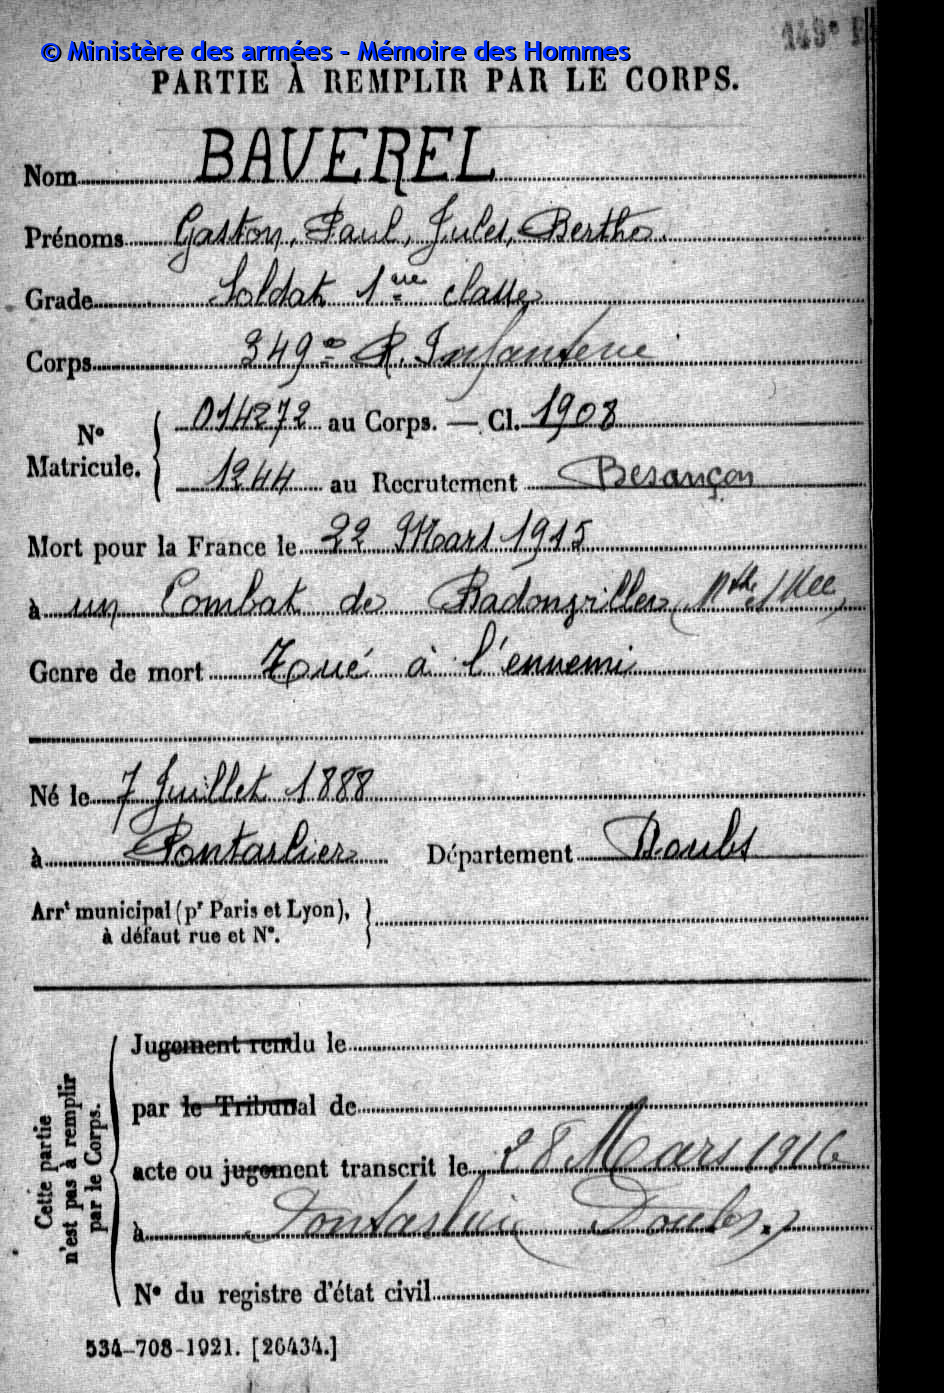 149e
© Ministère des armées - Mémoire des Hommes
PARTIE À REMPLIR PAR LE CORPS.
Nom BAVEREL
Prénoms Gaston, Paul, Jules, Berthe.
Grade Soldat 1ère classe
Corps 349e R. Infanterie
No Matricule. 014272 au Corps. — Cl. 1908
1244 au Recrutement Besançon
Mort pour la France le 22 Mars 1915
à un Combat de Badonviller (Mthe et Mlle)
Genre de mort Tué à l'ennemi
Né le 7 Juillet 1888
à Pontarlier Département Doubs
Arrt municipal (pr Paris et Lyon),
à défaut rue et No.
Cette partie
n'est pas à remplir
par le Corps.
Jugement rendu le
par le Tribunal de
acte ou jugement transcrit le 28 Mars 1916
à Pontarlier (Doubs.)
No du registre d'état civil
534-708-1921. [26434.]